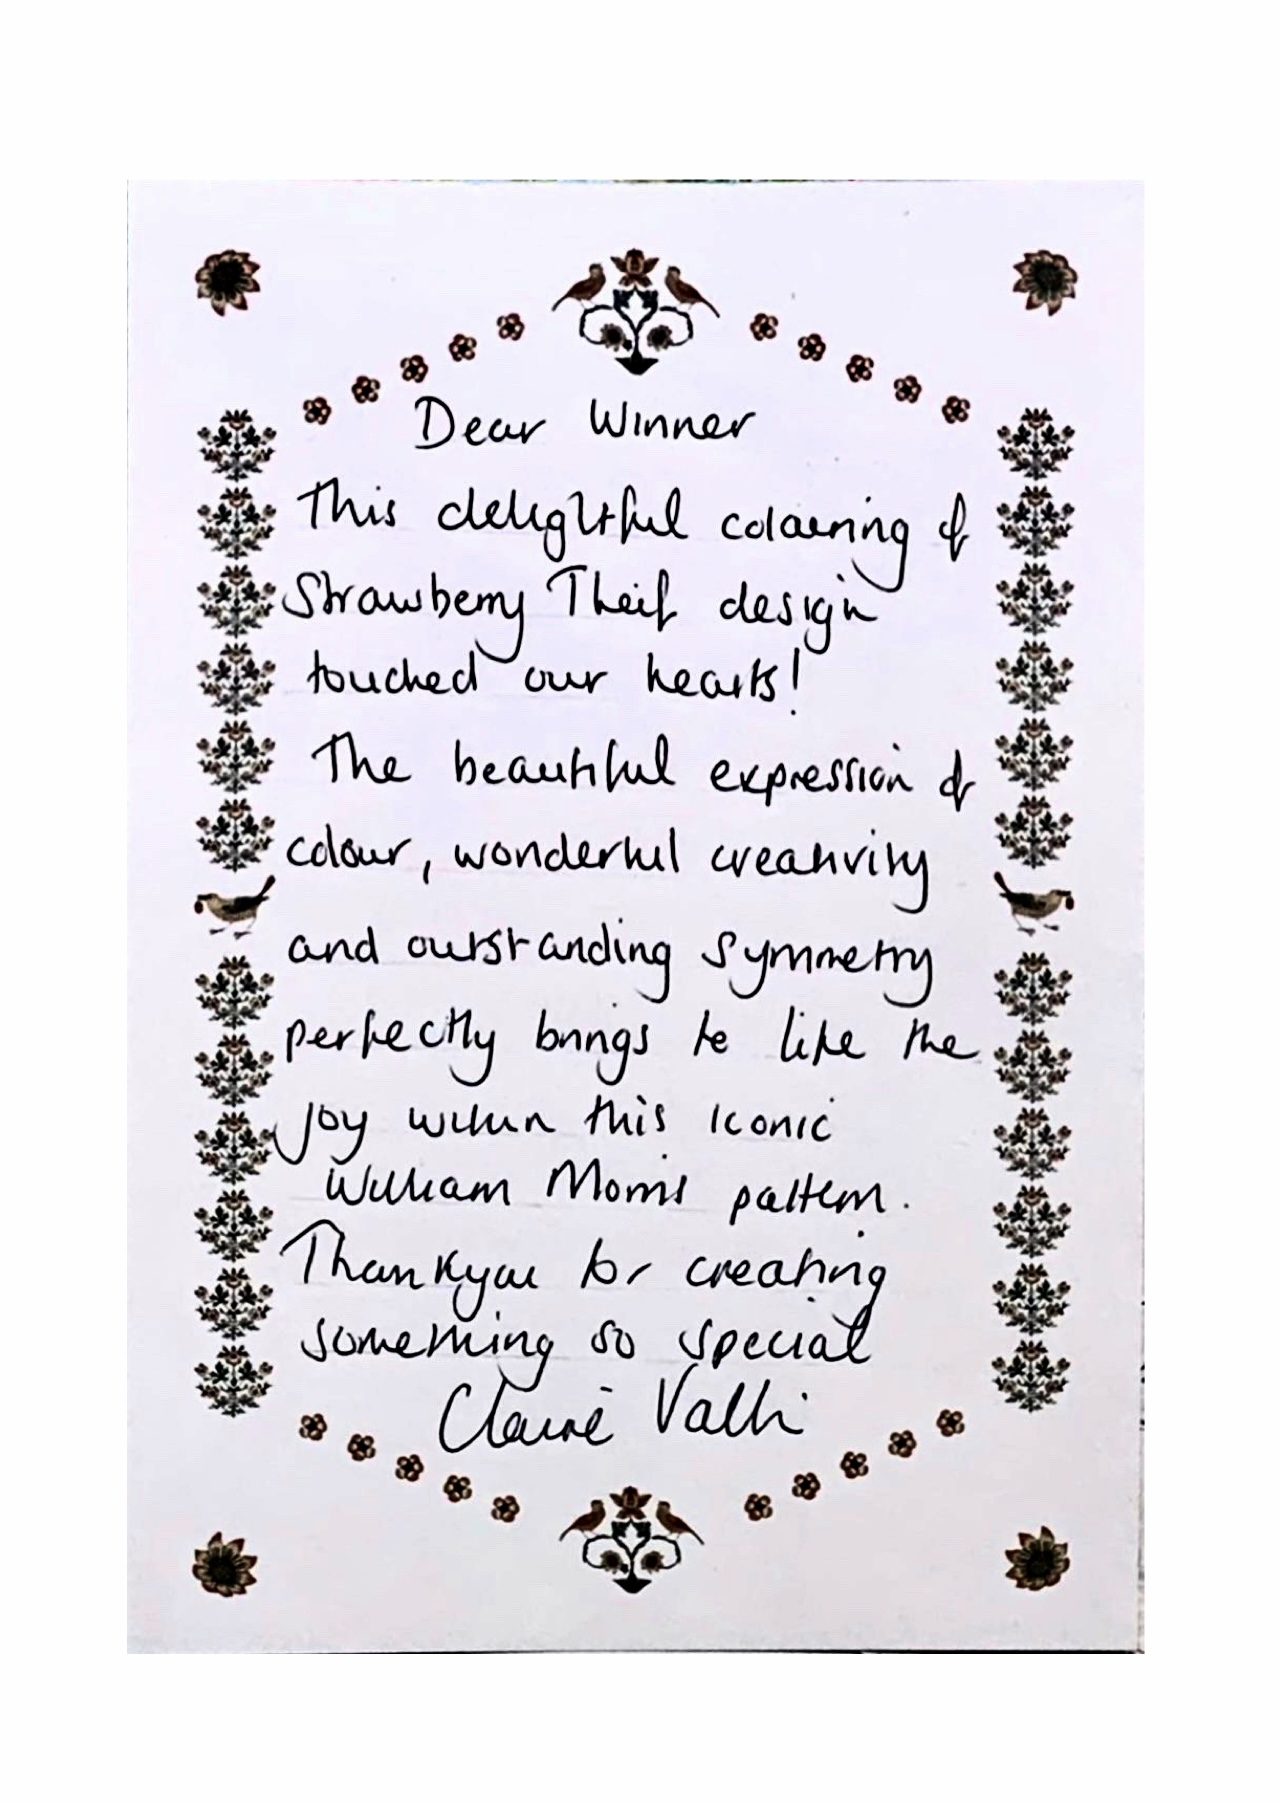 Dear Winner
This delightful colouring of
Strawberry Theif design
touched our hearts!
The beautiful expression of
colour, wonderful creativity
and outstanding symmetry
perfectly brings to life the
joy within this iconic
William Morris pattern.
Thankyou for creating
something so special
Claire Valli